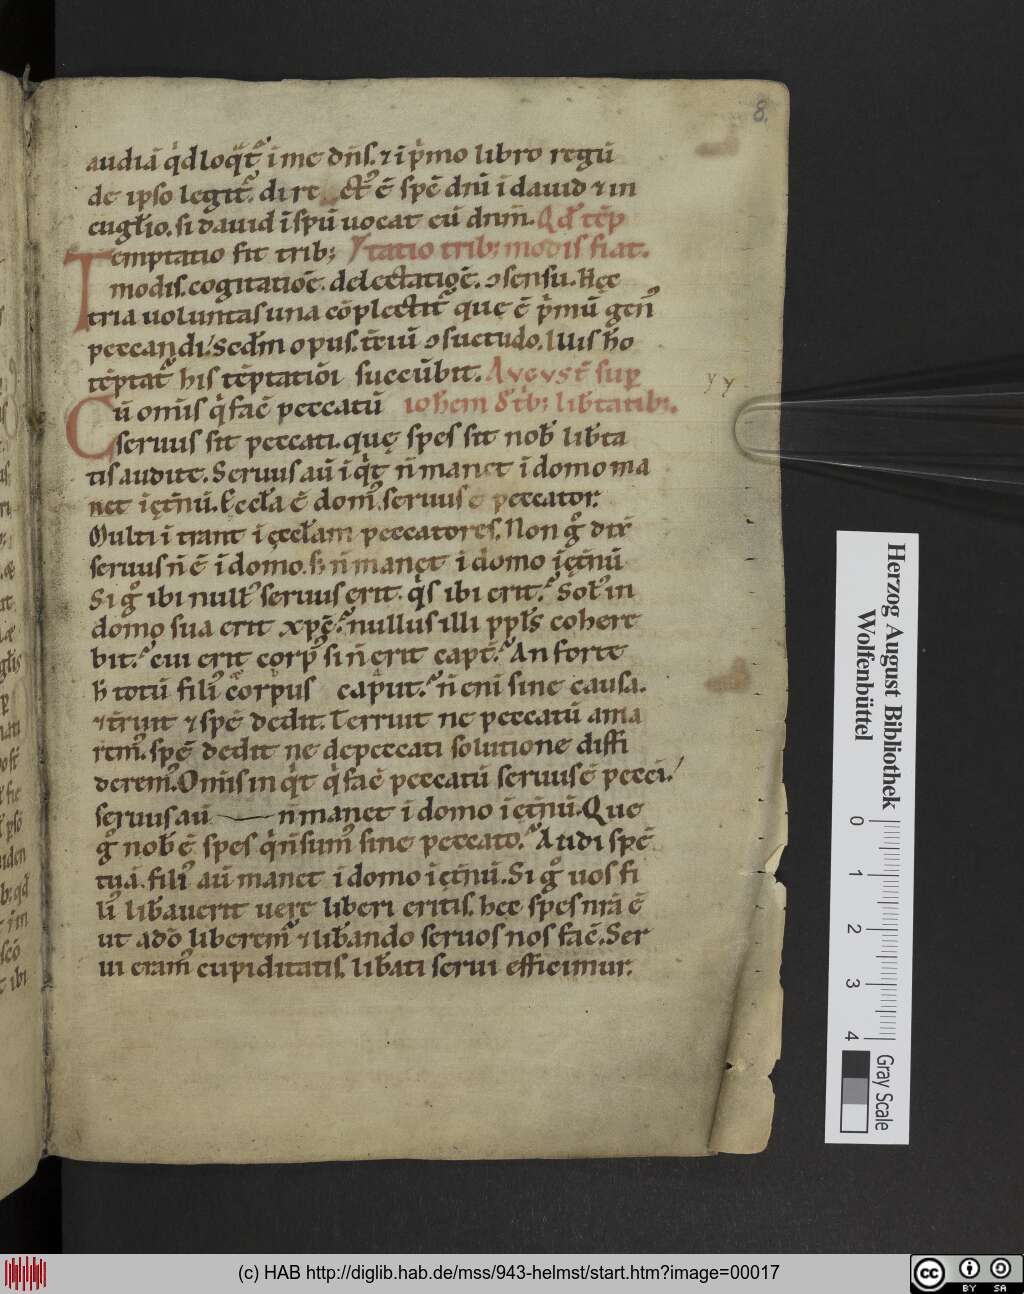 8.
audiā q̇d loq̄t᷑ ī me dn̄s. ⁊ ī p̍mo libro regū
de ipso legit᷑. dire ēt᷑ ē spē dnī ī dauid ⁊ in
euḡlio. si dauid ī spū uocat eū dnm̄. Qd̄ tēp
Temptatio fit trib; tatio trib; modis fiat.
modis. cogitatiōe. delectatiōe. ↄsensu. Hęc
tria uoluntas una cōplectit᷑ quę ē p̍mū gen᷒
peccandi. Sedm̄ opus. tēiū ↄsuetudo. Illis h̄o
tēptat᷑ his tēptatiōi succūbit. Avgvst̄ sup̱
Cū om̄is q̍ facē peccatū ioh̄em d̄ trib; lib̄tatib;.
seruus sit peccati. quę spes sit nob̄ lib̄ta
tis audite. Seruus aū īq̇t n̄ manet ī domo ma
net ī ęt̄nū. Eccl̄a ē dom᷒. seruus peccator.
Multi ītrant ī ęccl̄am peccatores. Non g̊ dix̄
seruus n̄ ē ī domo. s̄ n̄ manęt ī domo ī ęt̄nū
Si g̊ ibi null᷒ seruus erit. q̍s ibi erit. Sol᷒ in
domo sua erit xp̄c. nullus illi ppl̄s coheret
bit. cui erit corp᷒ si n̄ erit capt̄. An forte
h̄ totū filī corpus caput. n̄ eni sine causa.
⁊ t̄ruit ⁊ spē dedit. Terruit ne peccatū ama
rem᷒. spē dedit ne de peccati solutione diffi
derem᷒. Om̄is inq̇t q̍ facē peccatū seruus ē pecci.
seruus aū n̄ manet ī domo ī ęt̄nū. Que
g̊ nob̄ ē spes q̍ n̄ sum᷒ sine peccato. Audi spē
tuā. fili᷒ aū manet ī domo ī ęt̄nū. Si g̊ uos fi
li᷒ lib̄auerit uere liberi eritis. hec spes nr̄a ē
ut a dō liberem᷒ ⁊ lib̄ando seruos nos facē. Ser
ui eram᷒ cupiditatis. lib̄ati serui efficimur.
Herzog August Bibliothek
Wolfenbüttel
0 1 2 3 4
Gray Scale
(c) HAB http://diglib.hab.de/mss/943-helmst/start.htm?image=00017
cc BY SA